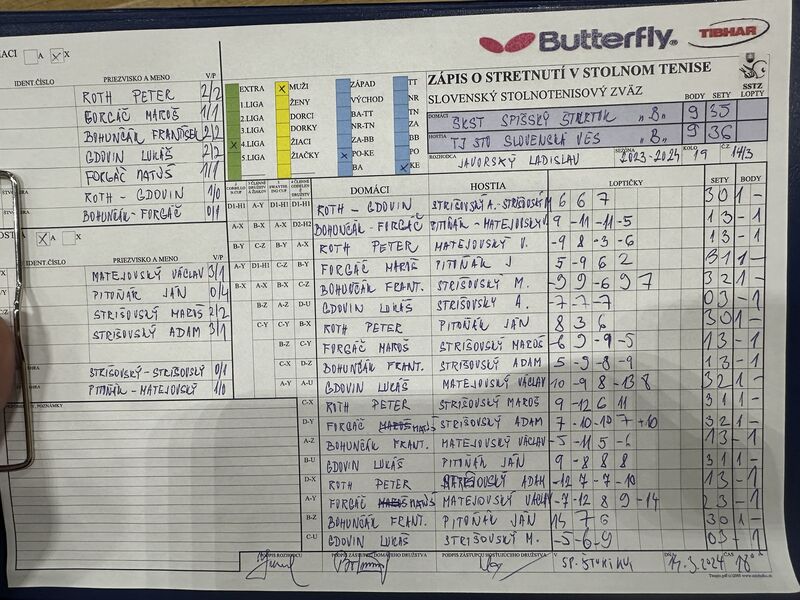 Butterfly
TIBHAR
ZÁPIS O STRETNUTÍ V STOLNOM TENISE
SLOVENSKÝ STOLNOTENISOVÝ ZVÄZ
SSTZ
BODY SETY LOPTY
DOMÁCI ŠKST SPIŠSKÝ ŠTVRTOK „B" 9 35
HOSTIA TJ STO SLOVENSKÁ VES „B" 9 36
ROZHODCA JAVORSKÝ LADISLAV SEZÓNA 2023-2024 KOLO 19 Č.Z. 14/3
EXTRA
1.LIGA
2.LIGA
3.LIGA
4.LIGA
5.LIGA
MUŽI
ŽENY
DORCI
DORKY
ŽIACI
ŽIAČKY
ZÁPAD
VÝCHOD
BA-TT
NR-TN
ZA-BB
PO-KE
BA
TT
NR
TN
ZA
BB
PO
KE
A X
IDENT.ČÍSLO PRIEZVISKO A MENO V/P
ROTH PETER 2/2
FORGÁČ MAROŠ 1/1
BOHUNČÁK FRANTIŠEK 2/2
GDOVIN LUKÁŠ 2/2
FORGÁČ MATÚŠ 1/1
ROTH - GDOVIN 1/0
BOHUNČÁK - FORGÁČ 0/1
A X
IDENT.ČÍSLO PRIEZVISKO A MENO V/P
MATEJOVSKÝ VÁCLAV 3/1
PITOŇÁK JÁN 0/4
STRIŠOVSKÝ MAROŠ 2/2
STRIŠOVSKÝ ADAM 3/1
STRIŠOVSKÝ - STRIŠOVSKÝ 0/1
PITOŇÁK - MATEJOVSKÝ 1/0
DOMÁCI HOSTIA LOPTIČKY SETY BODY
ROTH - GDOVIN STRIŠOVSKÝ A. - STRIŠOVSKÝ M 6 6 7 3 0 1 -
BOHUNČÁK - FORGÁČ PITOŇÁK - MATEJOVSKÝ V. 9 -11 -11 -5 1 3 - 1
ROTH PETER MATEJOVSKÝ V. -9 8 -3 -6 1 3 - 1
FORGÁČ MAROŠ PITOŇÁK J 5 -9 6 2 3 1 1 -
BOHUNČÁK FRANT. STRIŠOVSKÝ M. -9 9 -6 9 7 3 2 1 -
GDOVIN LUKÁŠ STRIŠOVSKÝ A. -7 -7 -7 0 3 - 1
ROTH PETER PITOŇÁK JÁN 8 3 6 3 0 1 -
FORGÁČ MAROŠ STRIŠOVSKÝ MAROŠ -6 9 -9 -5 1 3 - 1
BOHUNČÁK FRANT. STRIŠOVSKÝ ADAM 5 -9 -8 -9 1 3 - 1
GDOVIN LUKÁŠ MATEJOVSKÝ VÁCLAV 10 -9 8 -13 8 3 2 1 -
C-X ROTH PETER STRIŠOVSKÝ MAROŠ 9 -12 6 11 3 1 1 -
D-Y FORGÁČ MATÚŠ STRIŠOVSKÝ ADAM 7 -10 -10 7 +10 3 2 1 -
A-Z BOHUNČÁK FRANT. MATEJOVSKÝ VÁCLAV -5 -11 5 -6 1 3 - 1
B-U GDOVIN LUKÁŠ PITOŇÁK JÁN 9 -8 8 8 3 1 1 -
D-X ROTH PETER ADAM -12 7 -7 -10 1 3 - 1
A-Y FORGÁČ MATÚŠ MATEJOVSKÝ VÁCLAV -7 -12 8 9 -14 2 3 - 1
B-Z BOHUNČÁK FRANT. PITOŇÁK JÁN 14 7 6 3 0 1 -
C-U GDOVIN LUKÁŠ STRIŠOVSKÝ M. -5 -6 -9 0 3 - 1
PODPIS ROZHODCU PODPIS ZÁSTUPCU DOMÁCEHO DRUŽSTVA PODPIS ZÁSTUPCU HOSŤUJÚCEHO DRUŽSTVA V DŇA 14.3.2024 ČAS 18°°